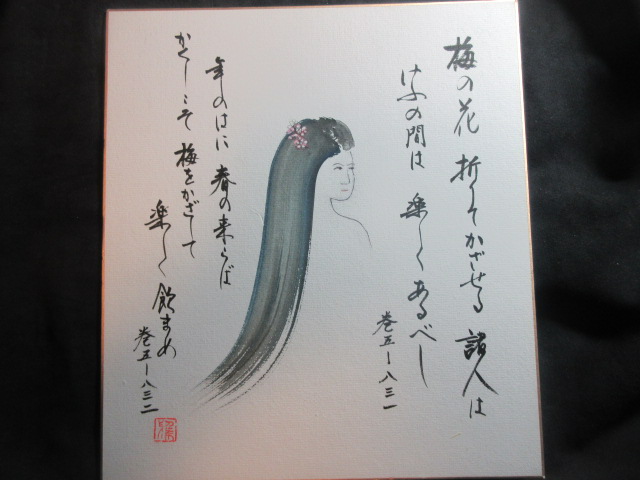 梅の花 折りてかざせる 諸人は
けふの間は 楽しくあるべし
巻五ー八三一
年のはに 春の来らば
かくしこそ 梅をかざして
楽しく飲まめ
巻五ー八三二